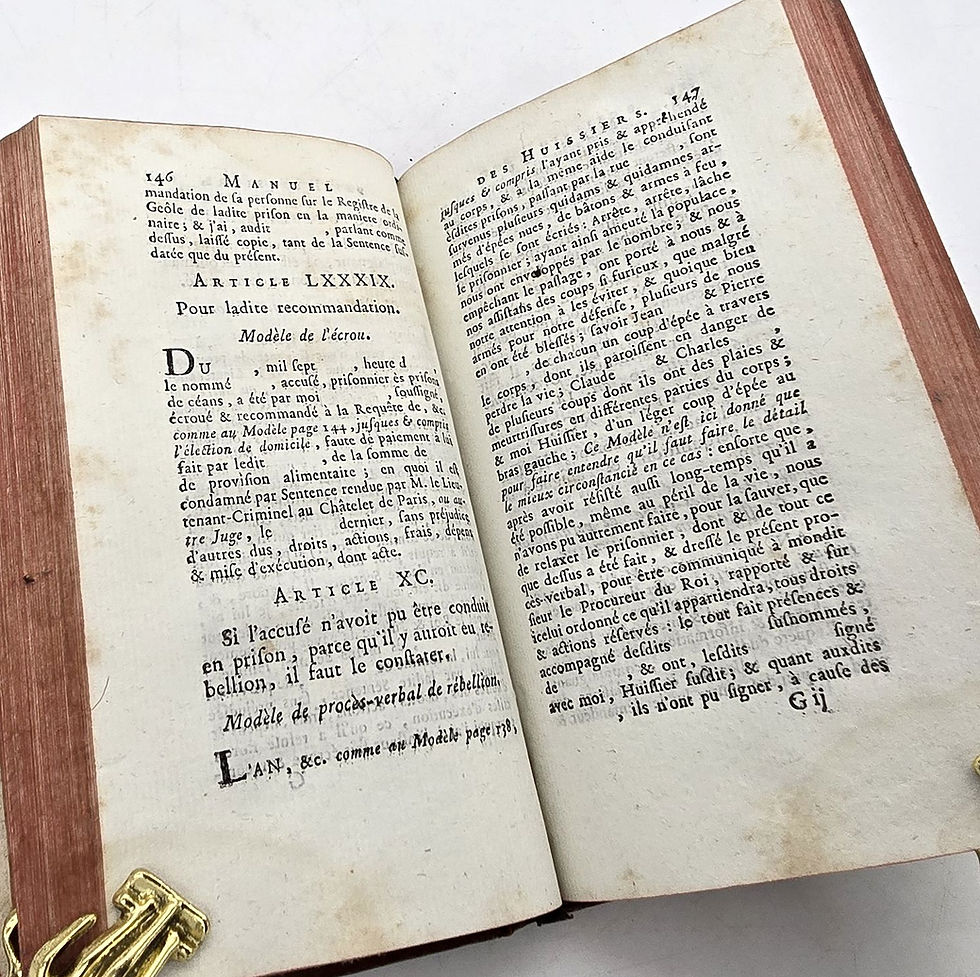 146 MANUEL
mandation de sa personne sur le Registre de la
Geôle de ladite prison en la maniere ordi-
naire ; & j'ai, audit , parlant comme
dessus, laissé copie, tant de la Sentence sus-
datée que du présent.
ARTICLE LXXXIX.
Pour ladite recommandation.
Modèle de l'écrou.
DU , mil sept , heure d
le nommé , accusé, prisonnier ès prisons
de céans, a été par moi , soussigné,
écroué & recommandé à la Requête de, &c.
comme au Modèle page 144, jusques & compris
l'élection de domicile, faute de paiement à lui
fait par ledit , de la somme de
de provision alimentaire ; en quoi il est
condamné par Sentence rendue par M. le Lieu-
tenant-Criminel au Châtelet de Paris, ou au-
tre Juge, le dernier, sans préjudice
d'autres dus, droits, actions, frais, dépens
& mise d'exécution, dont acte.
ARTICLE XC.
Si l'accusé n'avoit pu être conduit
en prison, parce qu'il y auroit eu re-
bellion, il faut le constater.
Modèle de procès-verbal de rébellion.
L'AN, &c. comme au Modèle page 138,
DES HUISSIERS. 147
jusques & compris l'ayant pris & appréhendé
au corps, & à la même aide le conduisant
esdites prisons, passant par la rue , sont
survenus plusieurs quidams & quidamnes ar-
més d'épées nues, de bâtons & armes à feu,
lesquels se sont écriés : Arrête, arrête, lâche
le prisonnier ; ayant ainsi ameuté la populace,
nous ont enveloppés par le nombre ; & nous
empêchant le passage, ont porté à nous & à
nos assistans des coups si furieux, que malgré
notre attention à les éviter, & quoique bien
armés pour notre défense, plusieurs de nous
en ont été blessés ; savoir Jean & Pierre
, de chacun un coup d'épée à travers
le corps, dont ils paroissent en danger de
perdre la vie ; Claude & Charles ,
de plusieurs coups dont ils ont des plaies &
meurtrissures en différentes parties du corps ;
& moi Huissier, d'un léger coup d'épée au
bras gauche ; Ce Modèle n'est ici donné que
pour faire entendre qu'il faut faire le détail
le mieux circonstancié en ce cas : ensorte que,
après avoir résisté aussi long-temps qu'il a
été possible, même au péril de la vie, nous
n'avons pu autrement faire, pour la sauver, que
de relaxer le prisonnier ; dont & de tout ce
que dessus a été fait, & dressé le présent pro-
cès-verbal, pour être communiqué à mondit
sieur le Procureur du Roi, rapporté & sur
icelui ordonné ce qu'il appartiendra, tous droits
& actions réservés : le tout fait présences &
accompagné desdits susnommés,
de , & ont, lesdits signé
avec moi, Huissier susdit ; & quant auxdits
, ils n'ont pu signer, à cause des
G ij